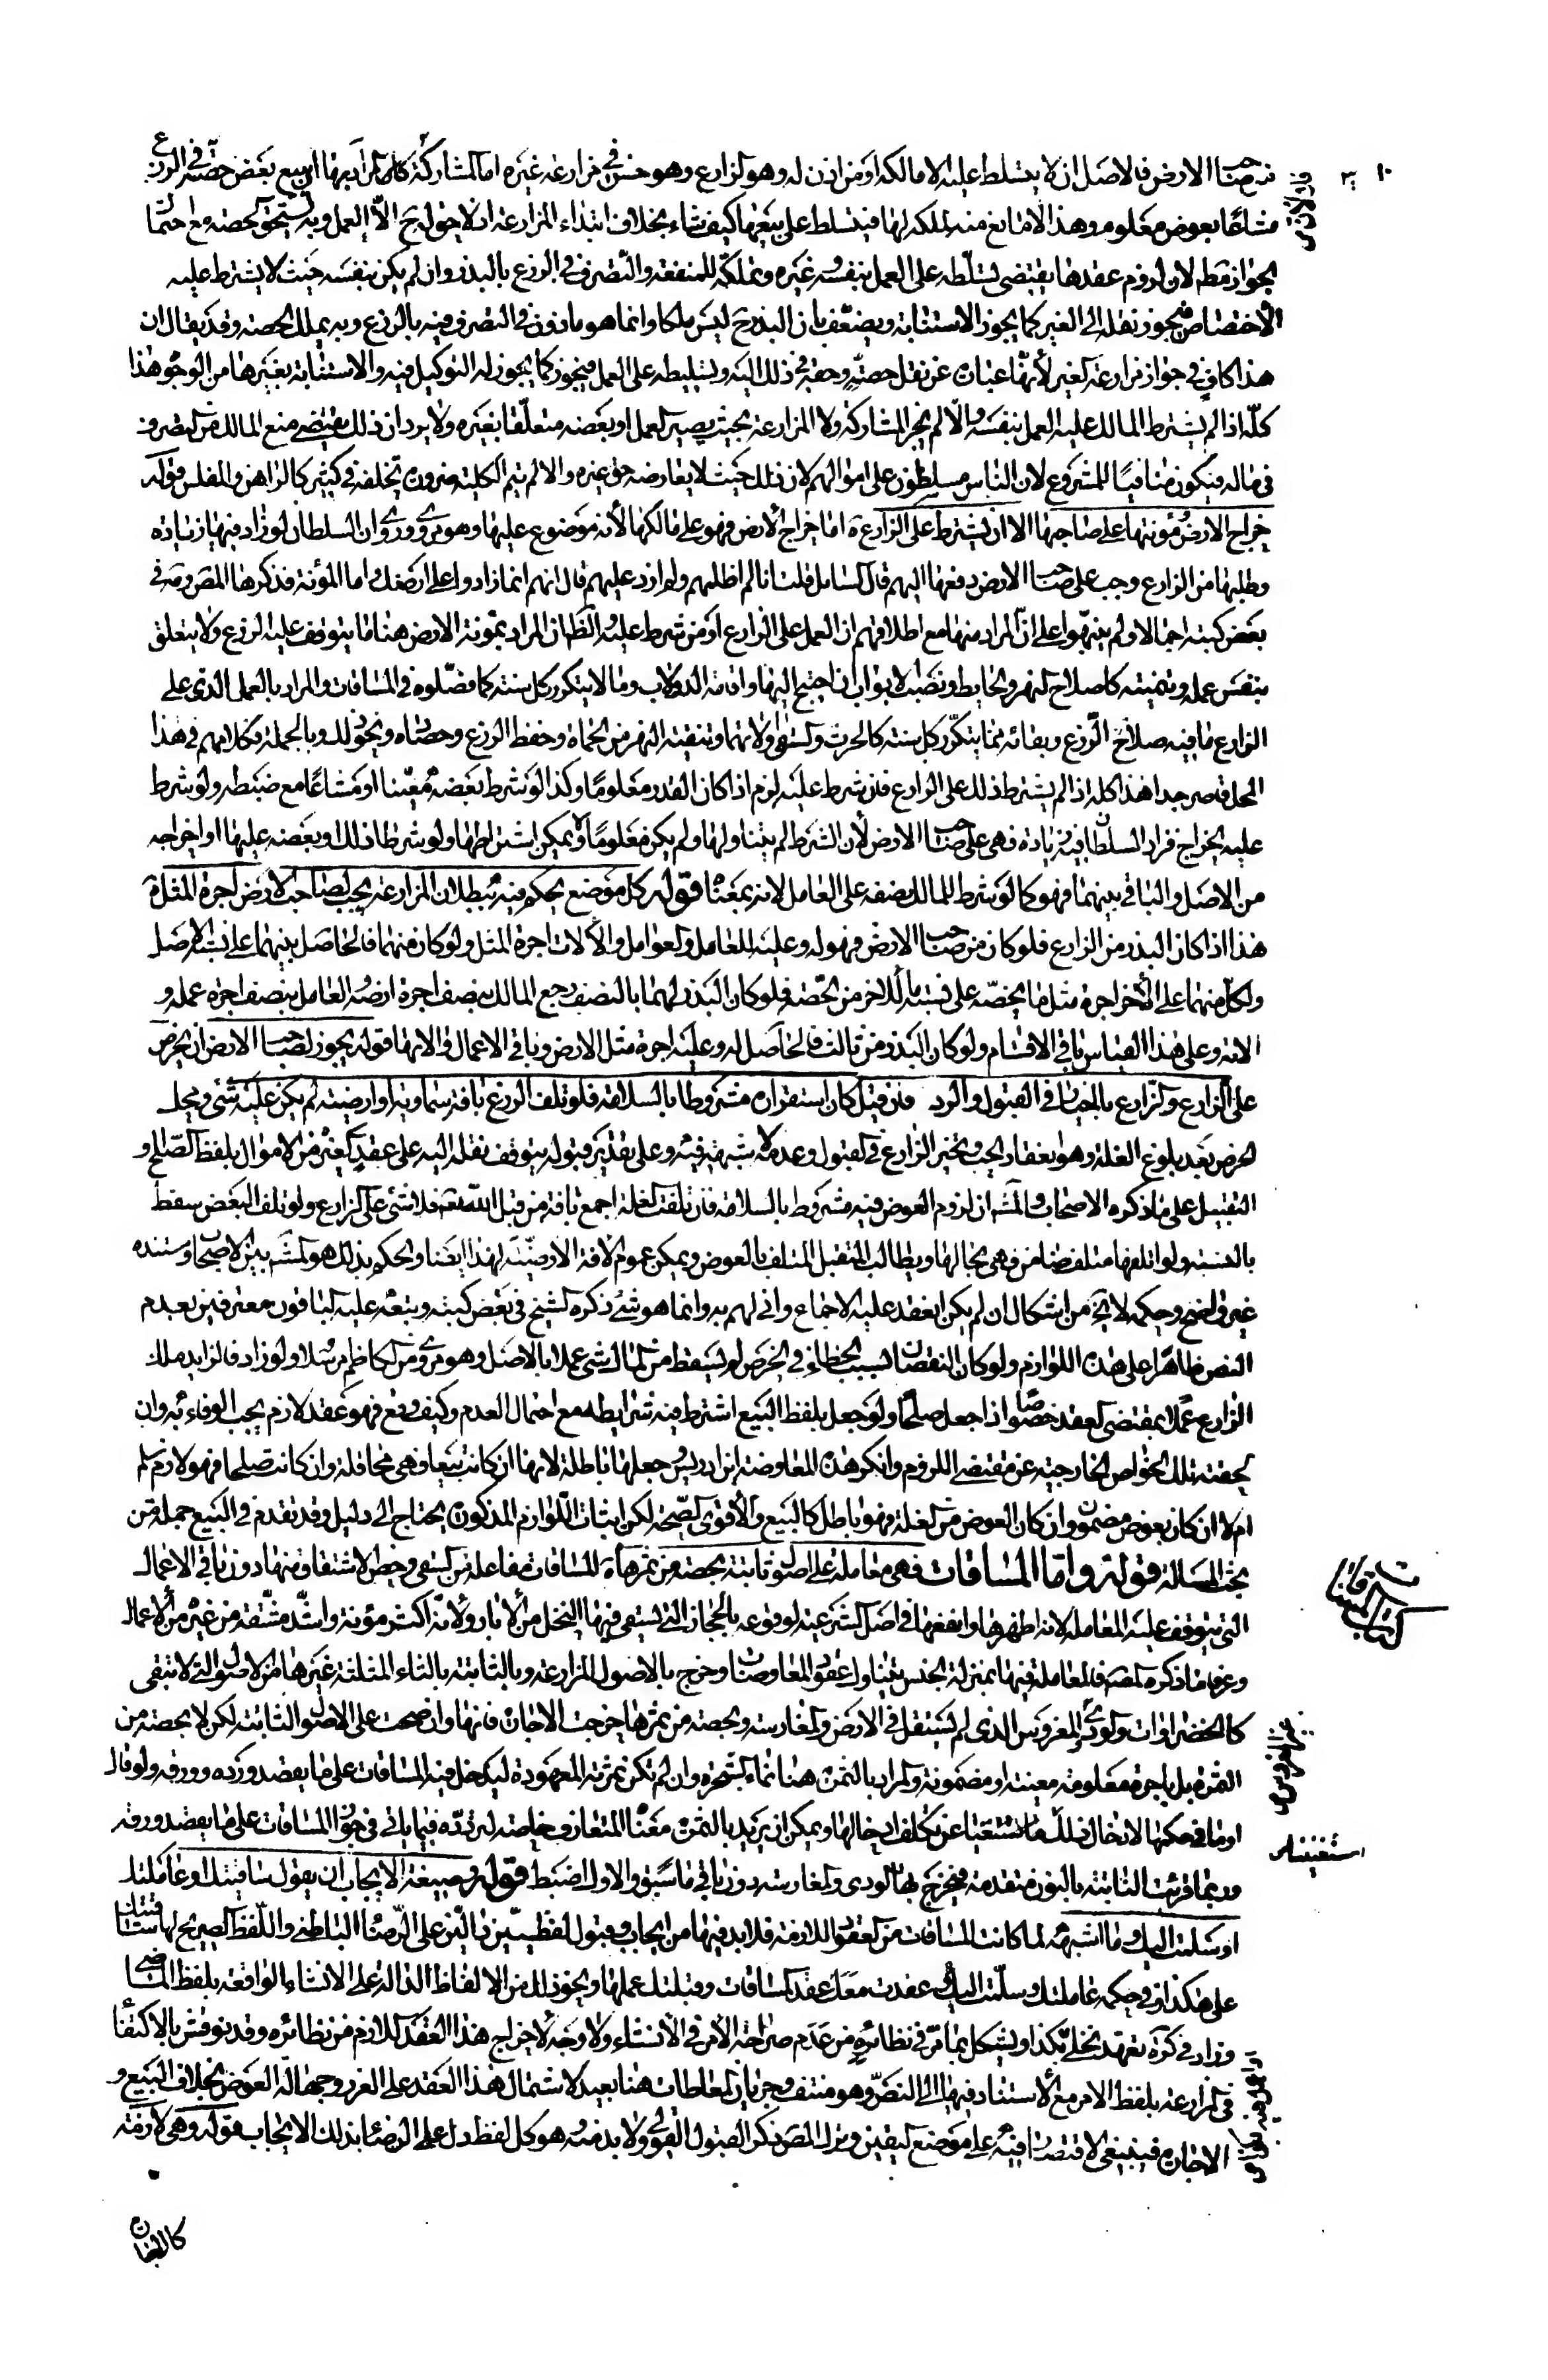 من صاحب الارض فالاصل ان لا يتسلط عليه الا مالكه او من اذن له وهو الزارع وهو حسن في مزارعة غيره اما المشاركة كان المراد بها ان يبيع بعض حصته في الزرع
مشاعا بعوض معلوم وهذا لا مانع منه لملكه لها فيتسلط على بيعها كيف شاء بخلاف ابتداء المزارعة اذ لا حق له ح الا العمل وبه يستحق الحصة مع احتمال
الجواز مطم لان لزوم عقدها يقتضي تسلطه على العمل بنفسه وغيره وتملكه للمنفعة والتصرف في الزرع بالبذر وان لم يكن بنفسه حيث لا يشترط عليه
الاختصاص فيجوز نقله الى الغير كما يجوز الاستنابة ويضعف بان البذر ح ليس ملكا وانما هو ماذون في التصرف فيه بالزرع وبه يملك الحصة وقد يقال ان
هذا كاف في جواز مزارعة الغير لانها عبارة عن نقل حصته وحقه في ذلك اليه وتسليطه على العمل فيجوز كما يجوز له التوكيل فيه والاستنابة بغيرها من الوجوه هذا
كله اذا لم يشترط المالك عليه العمل بنفسه والا لم يجز المشاركة ولا المزارعة بحيث يصير العمل او بعضه متعلقا بغيره ولا يرد ان ذلك يقتضي منع المالك من التصرف
في ماله فيكون منافيا للمشروع لان الناس مسلطون على اموالهم لان ذلك حيث لا يعارضه حق غيره والا لم يتم الكلية ضرورة تخلفه في كثير كالراهن والمفلس قوله
خراج الارض ومؤنتها على صاحبها الا ان يشترط على الزارع ه اما خراج الارض فهو على مالكها لانه موضوع عليها وهو مروي وروي ان السلطان لو زاد فيها زيادة
وطلبها من الزارع وجب على صاحب الارض دفعها اليهم قال السائل قلت انا لم اظلمهم ولم ازد عليهم قال انهم انما زادوا على ارضك واما المؤنة فذكرها المص وره في
بعض كتبه اجمالا ولم ينبهوا على ان المراد منها مع اطلاقهم ان العمل على الزارع او من شرط عليه والظ ان المراد بمؤنة الارض هنا ما يتوقف عليه الزرع ولا يتعلق
بنفس عمله وتنميته كاصلاح النهر والحايط ونصب الابواب ان احتيج اليها واقامة الدولاب وما لا يتكرر كل سنة كما فصلوه في المساقات والمراد بالعمل الذي على
الزارع ما فيه صلاح الزرع وبقائه مما يتكرر كل سنة كالحرث والسقي والاتهما وتنقية النهر من الحماة وحفظ الزرع وحصاده ونحو ذلك وبالجملة فكلامهم في هذا
المحل قاصر جدا هذا كله اذا لم يشترط ذلك على الزارع فان شرط عليه لزم اذا كان القدر معلوما وكذا لو شرط بعضه معينا او مشاعا مع ضبطه ولو شرط
عليه الخراج فزاد السلطان فيه زيادة فهي على صاحب الارض لان الشرط لم يتناولها ولم يكن معلوما ولا يمكن اشتراطها ولو شرطا ذلك او بعضه عليها او اخراجه
من الاصل والباقي بينهما فهو كما لو شرط المالك نصفه على العامل لانه بمعناه قوله كل موضع يحكم فيه ببطلان المزارعة يجب لصاحب الارض اجرة المثل ه
هذا اذا كان البذر من الزارع فلو كان من صاحب الارض فهو له وعليه للعامل والعوامل والآلات اجرة المثل ولو كان منهما فالحاصل بينهما على نسبة الاصل
ولكل منهما على الآخر اجرة مثل ما يخصه على نسبة ما للاخر من الحصة فلو كان البذر لهما بالنصف رجع المالك بنصف اجرة ارضه والعامل بنصف اجرة عمله و
آلاته وعلى هذا القياس باقي الاقسام ولو كان البذر من ثالث فالحاصل له وعليه اجرة مثل الارض وباقي الاعمال والآتها قوله يجوز لصاحب الارض ان يخرص
على الزارع والزارع بالخيار في القبول والرد فان قبل كان استقراره مشروطا بالسلامة فلو تلف الزرع بافة سماوية او ارضية لم يكن عليه شيء ومحل
الخرص بعد بلوغ الغلة وهو انعقاد الحب ويخير الزارع في القبول وعدمه لا شبهة فيه وعلى تقدير قبوله يتوقف نقله اليه على عقد كغيره من الاموال بلفظ الصلح او
التقبيل على ما ذكره الاصحاب والمشهور ان لزوم العوض فيه مشروط بالسلامة فان تلفت الغلة اجمع بافة من قبل الله تعه فلا شيء على الزارع ولو تلف البعض سقط
بالنسبة ولو اتلفها متلف ضامن فهي بحالها ويطالب المتقبل المتلف بالعوض ويمكن عموم الافة الارضية لهذا ايضا والحكم بذلك هو المشهور بين الاصحاب ومستنده
غير واضح وحكمه لا يخ من اشكال ان لم يكن انعقد عليه الاجماع واني لهم به وانما هو شيء ذكره الشيخ في بعض كتبه وتبعه عليه الباقون معترفين بعدم
النص ظاهرا على هذه اللوازم ولو كان النقصان بسبب الخطاء في الخرص لم يسقط من المال شيء عملا بالاصل وهو مروي عن الكاظم مرسلا ولو زاد فالزايد ملك
الزارع عملا بمقتضى العقد خصوصا اذا جعل صلحا ولو جعل بلفظ البيع اشترط فيه شرايطه مع احتمال العدم وكيف وقع فهو عقد لازم يجب الوفاء به وان
لحقته تلك الخواص الخارجية عن مقتضى اللزوم وانكر هذه المعاوضة ابن ادريس وجعلها باطلة لانها ان كانت بيعا فهي محاقلة وان كانت صلحا فهو لازم سلم
ام لا ان كان بعوض مضمون وان كان العوض من الغلة فهو باطل كالبيع والاقوى الصحة لكن اثبات اللوازم المذكورة يحتاج الى دليل وقد تقدم في البيع جملة من
بحث المسالة قوله واما المساقات فهي معاملة على اصول ثابتة بحصة من ثمرها ه المساقات مفاعلة من السقي وخص الاشتقاق منها دون باقي الاعمال
التي تتوقف عليه المعاملة لانه اظهرها وانفعها في اصل الشرعية لوقوعه بالحجاز التي يسقى فيها النخل من الآبار ولانه اكثر مؤنة واشد مشقة من غيره من الاعمال
وعرفها ما ذكره المصنف فالمعاملة فيها بمنزلة الجنس يتناول عقود المعاوضات وخرج بالاصول المزارعة وبالثابتة بالثاء المثلثة غيرها من الاصول التي لا تبقى
كالخضراوات والودي المغروس الذي لم يستقل في الارض والمغارسة وبحصة من ثمرها خرجت الاجارة فانها وان صحت على الاصول الثابتة لكن لا بحصة من
الثمرة بل باجرة معلومة معينة او مضمونة والمراد بالثمرة هنا نماء الشجرة وان لم تكن ثمرته المعهودة ليدخل فيه المساقات على ما يقصد ورده وورقه ولو قال
او ما في حكمها لادخال ذلك كان مستغنيا عن تكلف ادخالها ويمكن ان يريد بالثمرة معناها المتعارف خاصة لتردده فيما ياتي في جواز المساقات على ما يقصد ورقه
وربما قرئت النابتة بالنون متقدمة فيخرج بها الودي والمغارسة دون باقي ما سبق والاول اضبط قوله وصيغة الايجاب ان يقول ساقيتك او عاملتك
او سلمت اليك وما اشبهه لما كانت المساقات من العقود اللازمة فلا بد فيها من ايجاب وقبول لفظيين دالين على الرضا الباطني واللفظ الصريح لها ساقيتك
على كذا وفي حكمه عاملتك وسلمت اليك وعقدت معك عقد المساقات وقبلتك عملها ونحو ذلك من الالفاظ الدالة على الانشاء الواقعة بلفظ الماضي
وزاد في كرة تعهد نخلي بكذا ويشكل بما مر في نظائره من عدم صراحة الامر في الانشاء ولا وجه لاخراج هذا العقد اللازم من نظائره وقد نوقش بالاكتفاء
في المزارعة بلفظ الامر مع الاستناد فيها الى النص وهو منتف وجريان المغلطات هنا بعيد لاشتمال هذا العقد على الغرر وجهالة العوض بخلاف البيع و
الاجارة فينبغي الاقتصار فيه على موضع اليقين وترك المص ذكر القبول القولي ولا بد منه وهو كل لفظ دل على الرضا بذلك الايجاب قوله وهي لازمة
كالاجارة
كتاب المساقات